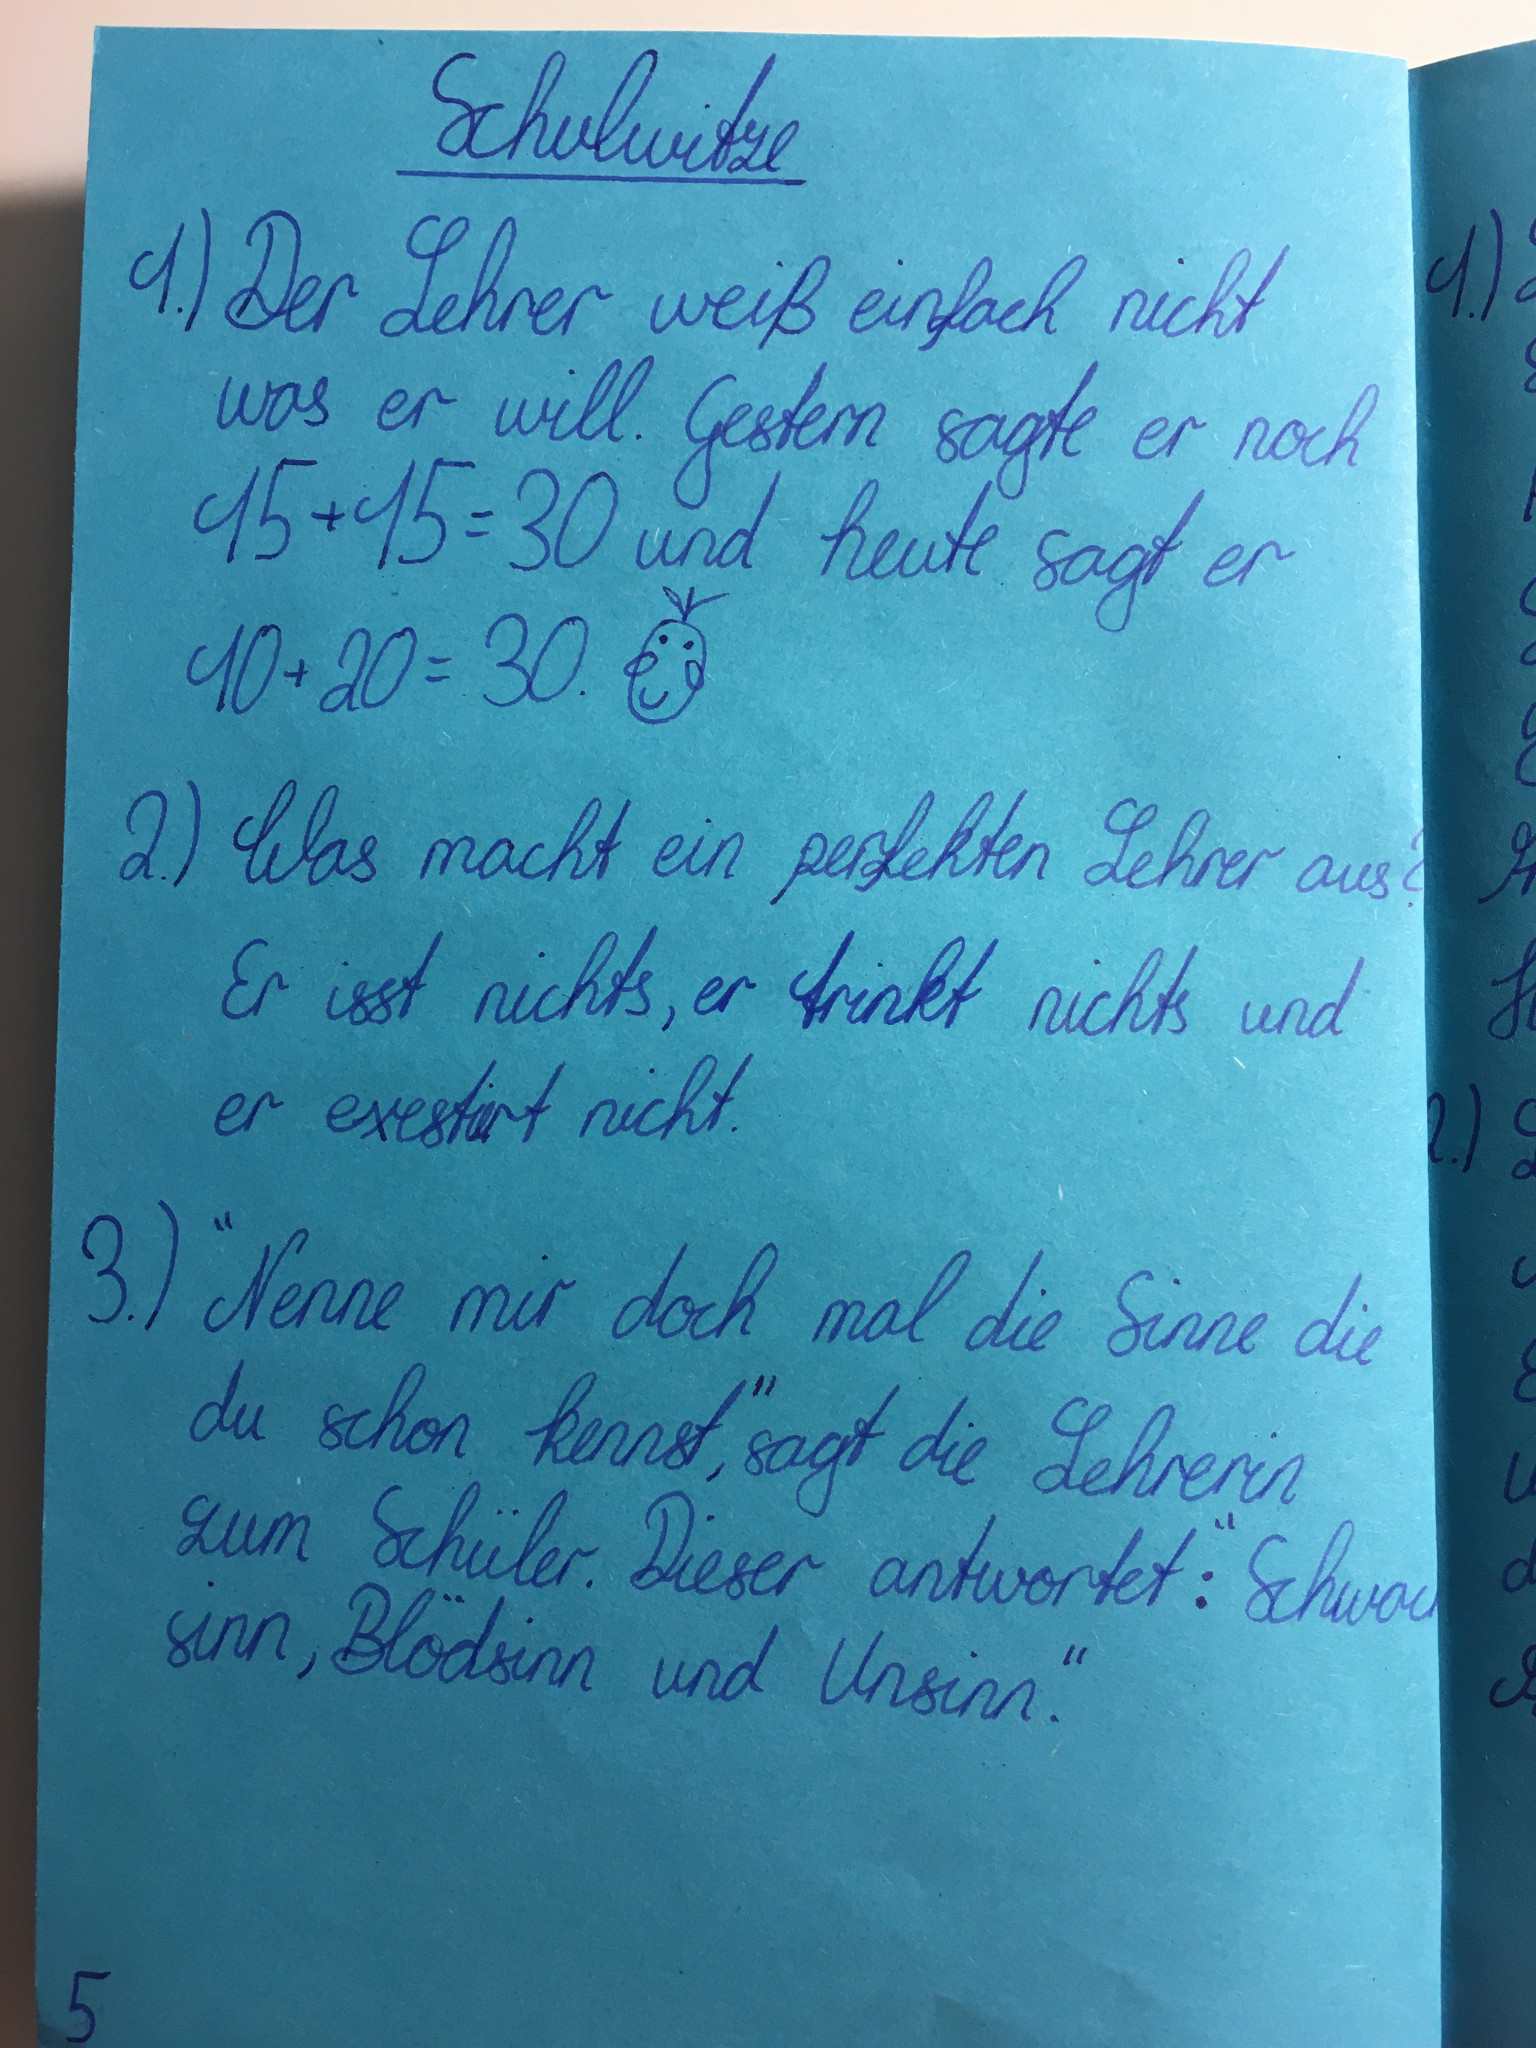 Schulwitze
1.) Der Lehrer weiß einfach nicht
was er will. Gestern sagte er noch
15+15=30 und heute sagt er
10+20=30.
2.) Was macht ein perfekten Lehrer aus?
Er isst nichts, er trinkt nichts und
er exestirt nicht.
3.) "Nenne mir doch mal die Sinne die
du schon kennst," sagt die Lehrerin
zum Schüler. Dieser antwortet: "Schwach
sinn, Blödsinn und Unsinn."
5
1.)
2.)